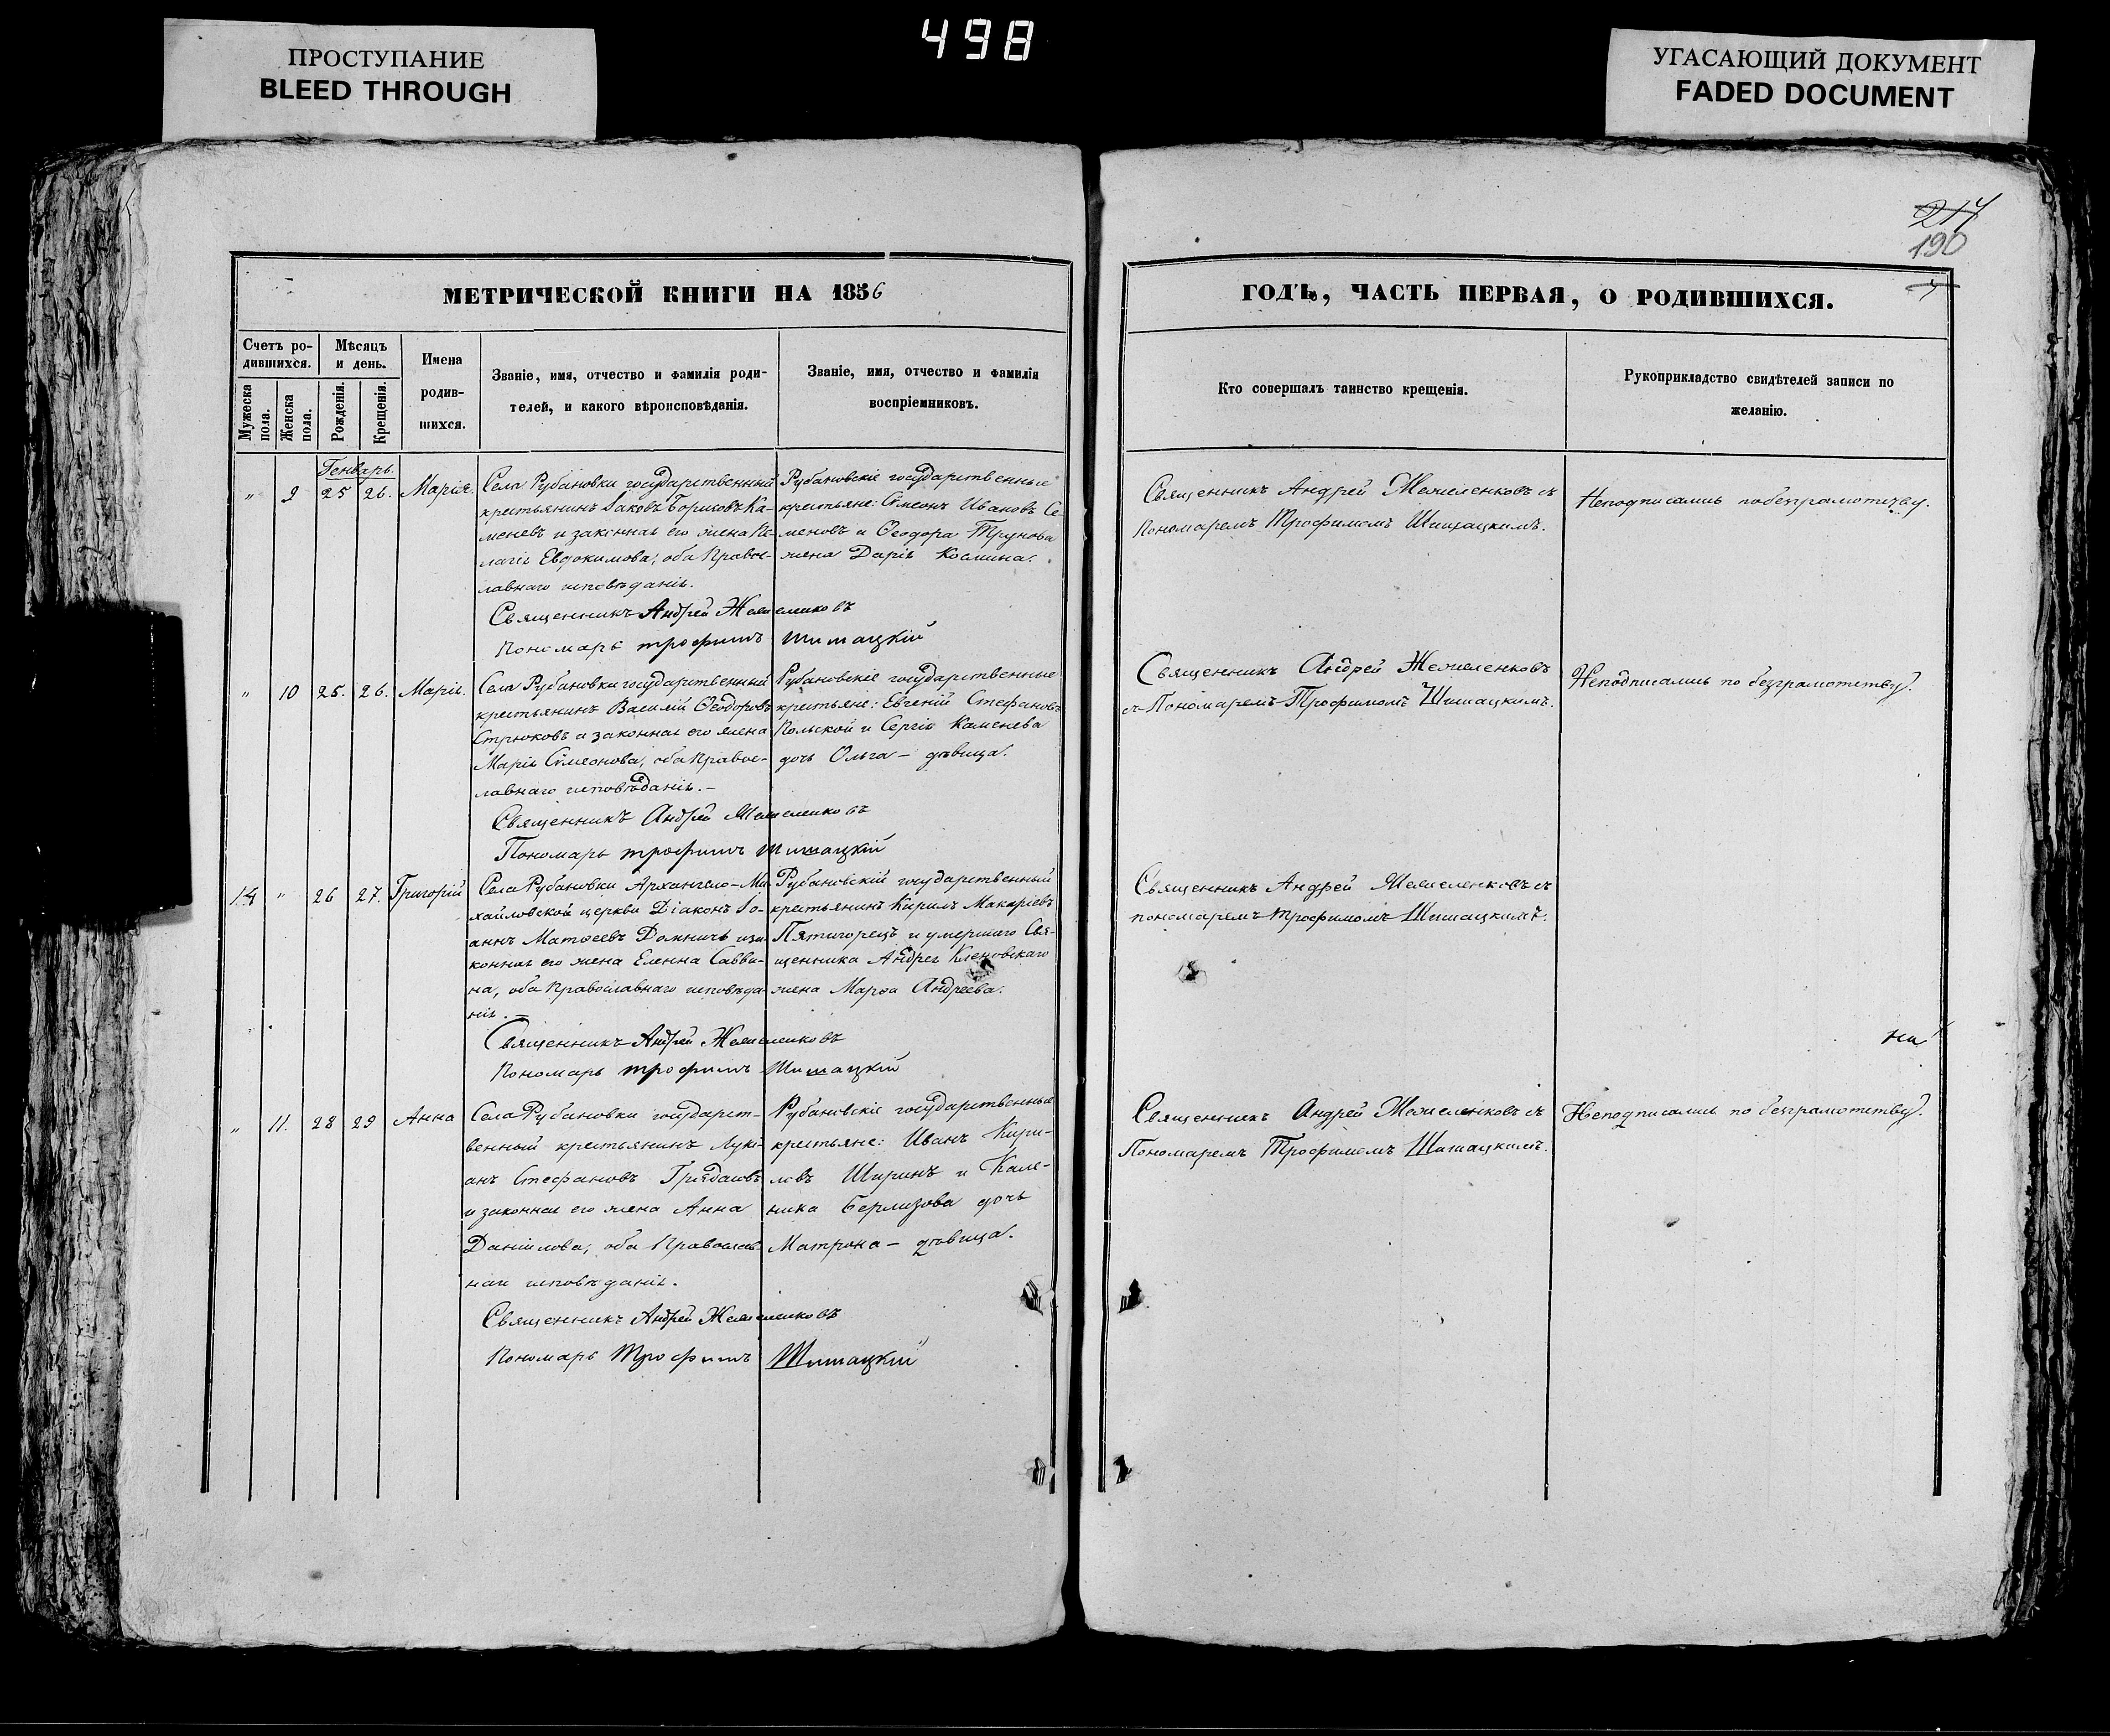 498
ПРОСТУПАНИЕ
BLEED THROUGH
УГАСАЮЩИЙ ДОКУМЕНТ
FADED DOCUMENT
217
190
МЕТРИЧЕСКОЙ КНИГИ НА 1856
Счетъ ро-
дившихся.
Мѣсяцъ
и день.
Мужеска
пола.
Женска
пола.
Рожденія.
Крещенія.
Имена
родив-
шихся.
Званіе, имя, отчество и фамилія роди-
телей, и какого вѣроисповѣданія.
Званіе, имя, отчество и фамилія
воспріемниковъ.
Генварь.
" 9 25 26. Марія.
Села Рубановки государственный
крестьянинъ Іаковъ Борисовъ Ка-
меневъ и законная его жена Пе-
лагія Евдокимова, оба Правос-
лавнаго исповѣданія.
Рубановскіе государственные
крестьяне: Симеонъ Ивановъ Се-
меновъ и Ѳеодора Трунова
жена Дарія Космина.
Священникъ Андрей
Пономарь трофимъ Шишацкій
" 10 25. 26. Марія.
Села Рубановки государственный
крестьянинъ Василій Ѳеодоровъ
Стрюковъ и законная его жена
Марія Симеонова, оба Правос-
лавнаго исповѣданія.-
Рубановскіе государственные
крестьяне: Евгеній Стефановъ
Польской и Сергія Каменева
дочь Ольга - дѣвица.
Священникъ Андрей
Пономарь трофимъ Шишацкій
14 " 26 27. Григорій
Села Рубановки Архангело-Ми-
хайловской церкви Діаконъ Іо-
аннъ Матѳеевъ Домничь и за-
конная его жена Еленна Савви-
на, оба Православнаго исповѣда-
нія.-
Рубановскій государственный
крестьянинъ Кирилъ Макаріевъ
Пятигорецъ и умершаго Свя-
щенника Андрея Кленовскаго
жена Марѳа Андреева.
Священникъ Андрей
Пономарь трофимъ Шишацкій
" 11. 28 29 Анна
Села Рубановки государст-
венный крестьянинъ Луки-
анъ Стефановъ
и законная его жена Анна
Даніилова, оба Православ-
наго исповѣданія.
Рубановскіе государственные
крестьяне: Иванъ Кири-
ловъ Ширинъ и Кале-
ника Берлизова дочь
Матрона - дѣвица.
Священникъ Андрей
Пономарь Трофимъ Шишацкій
ГОДЪ, ЧАСТЬ ПЕРВАЯ, О РОДИВШИХСЯ.
Кто совершалъ таинство крещенія.
Рукоприкладство свидѣтелей записи по
желанію.
Священникъ Андрей съ
Пономаремъ Трофимомъ Шишацкимъ.
Неподписались по безграмотству.
Священникъ Андрей
съ Пономаремъ Трофимомъ Шишацкимъ.
Неподписались по безграмотству.
Священникъ Андрей съ
пономаремъ Трофимомъ Шишацкимъ.
Священникъ Андрей съ
Пономаремъ Трофимомъ Шишацкимъ.
Неподписались по безграмотству.